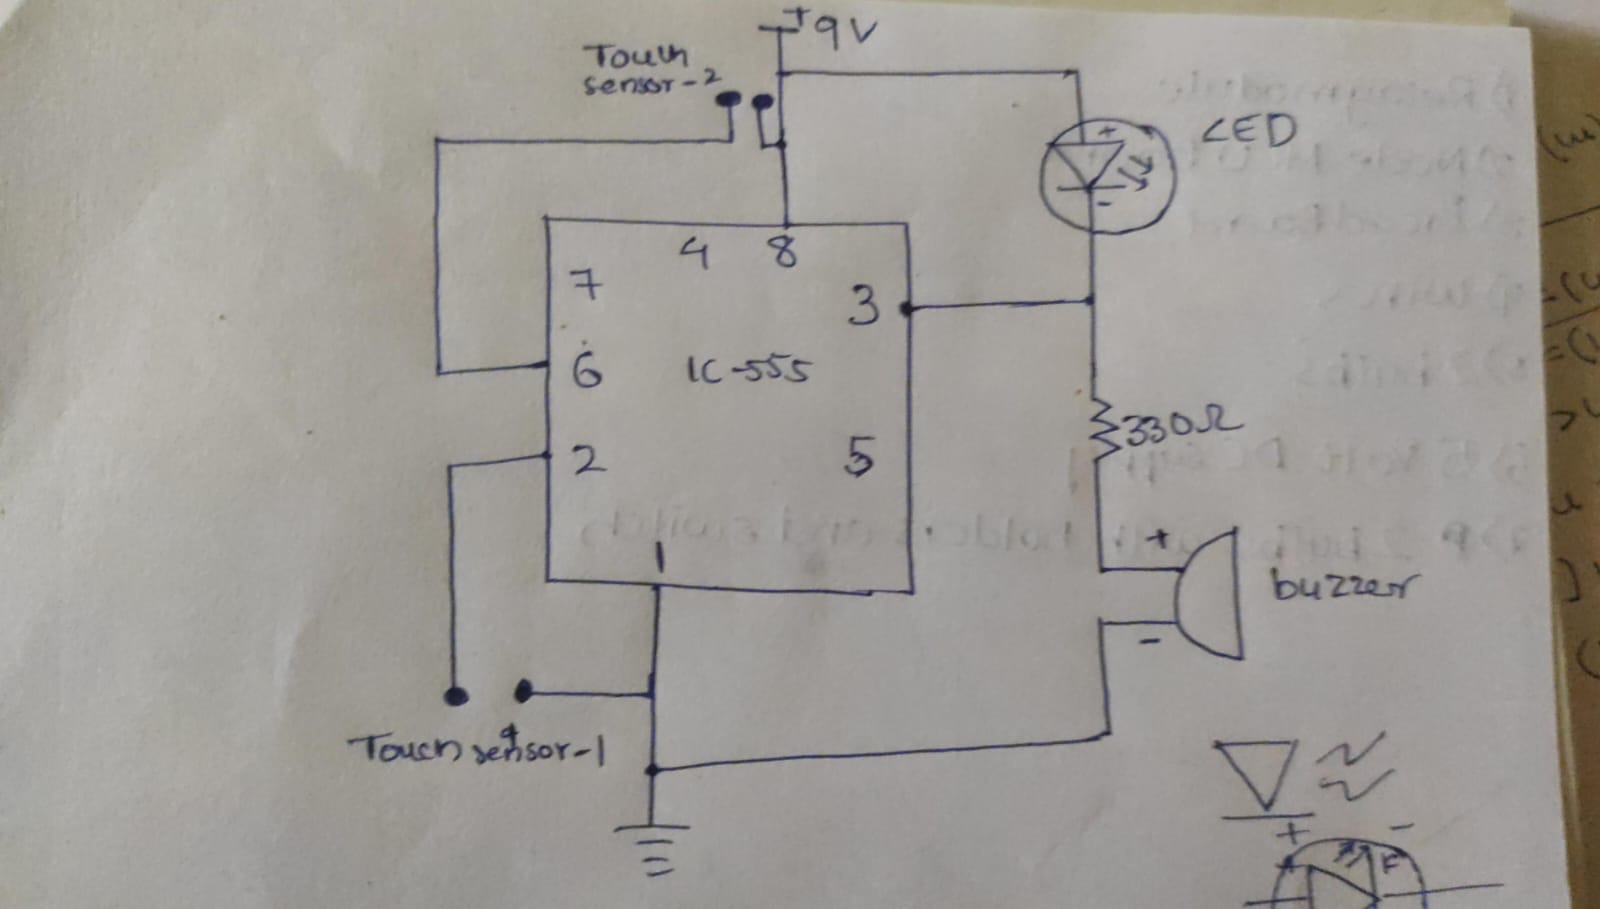 +9V
Touch
sensor-2
+
LED
-
4 8
7
3
6
IC-555
330Ω
2
5
1
+
buzzer
-
Touch sensor-1
+
-